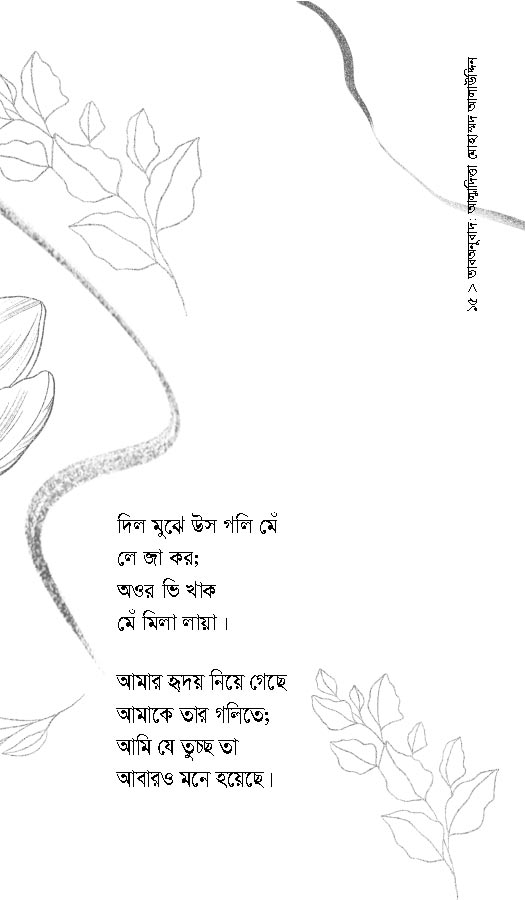 ১৫ > ভাবঅনুবাদ: আল্লাদিত্তা মোহাম্মদ আলাউদ্দিন
দিল মুঝে উস গলি মেঁ
লে জা কর;
অওর ভি খাক
মেঁ মিলা লায়া।
আমার হৃদয় নিয়ে গেছে
আমাকে তার গলিতে;
আমি যে তুচ্ছ তা
আবারও মনে হয়েছে।